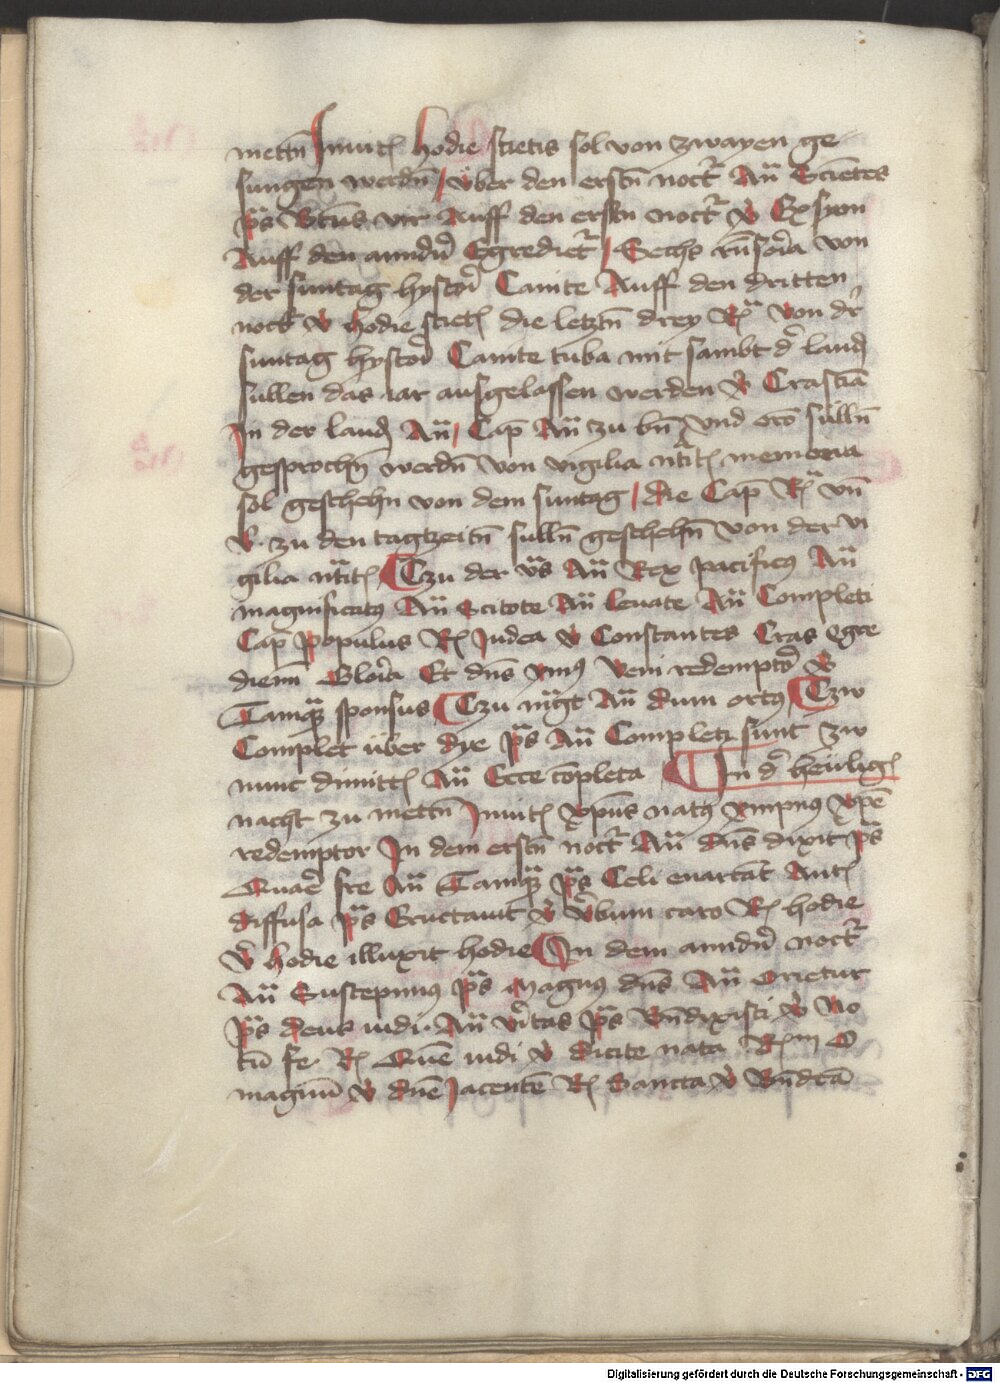 mettn̄ Inuit̄ hodie scietis sol von zwayen ge
sungen werdn̄ / vber den erstn̄ noct̄ʳ An̄ Scientes
ps Btūs vir Auff den ersten noct̄ʳ v̄ Ex syon
Auff den anndn̄ Egrediet̄ʳ / Sechs rn̄soria von
der suntag hystori Canite Auff den dritten
noct̄ v̄ hodie sciet̄ die letztn̄ drey R̄ von dʳ
suntag hystori Canite tuba mit sambt dʳ laud̄
sullen das iar ausgelassen werden v̄ Crastīa
In der laud̄ An̄ / Cap̄ An̄ zu bn̄ vnd oro sulln̄
gesprochn̄ werdn̄ von vigilia nītit̄ memoria
sol geschehn von dem suntag / die Cap̄ R̄ vn̄
v̄. zu den tagtzeitn̄ sulln̄ geschehn̄ von der vi
gilia nītit̄ Tzu der v̄s An̄ Rex pacificꝰ An̄
magnificatꝰ An̄ Scitote An̄ leuate An̄ Completi
Cap̄ populus R̄ Iudea v̄ Constantes Cras egre
diemī Gloria Et dn̄s vm̄ꝰ veni redemptoʳ v̄
Tamq̄ sponsus Tzu mḡt An̄ dum ortꝰ Tzw
Complet über dye ps An̄ Completi sunt zw
nunc dimitt̄ An̄ Ecce cōpleta In dʳ heiiligñ
nacht zu mettn̄ Inuit̄ xp̄us natꝰ ympnꝰ xp̄e
redemptor In dem erstn̄ noct̄ʳ An̄ dn̄s dixit ps
Quāe fre An̄ Tamq̄ ps Celi enarrāt Ant̄
diffusa ps Eructauit v̄ v̄bum caro R̄ hodie
v̄ hodie illuxit hodie In dem anndn̄ noct̄ʳ
An̄ Suscepimꝰ ps Magnꝰ dn̄s An̄ Orietur
ps deus iudi. An̄ vītas ps Bn̄dixisti v̄ No
tū fe. R̄ Quē uidi v̄ dicite nata R̄m O
magnū v̄ dn̄e Iacentē R̄ Sancta v̄ Bn̄dcā
Digitalisierung gefördert durch die Deutsche Forschungsgemeinschaft - DFG